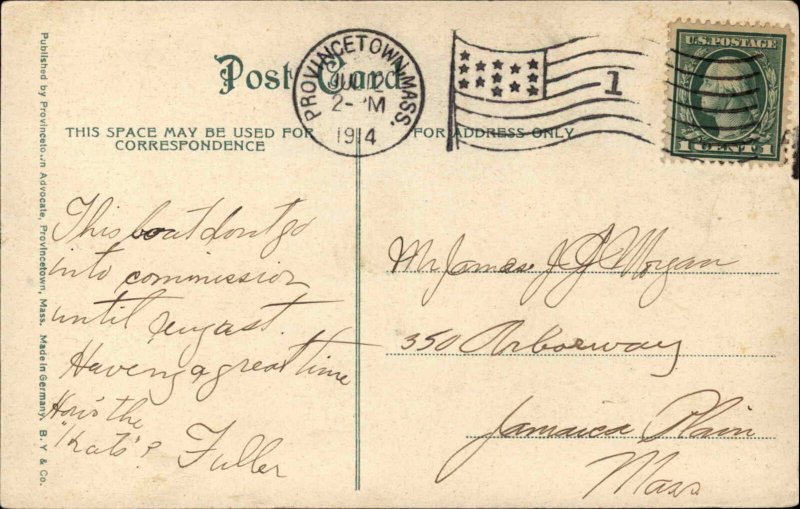 Post Card
PROVINCETOWN, MASS.
2- PM
1914
1
U.S. POSTAGE
1 CENT 1
THIS SPACE MAY BE USED FOR
CORRESPONDENCE
FOR ADDRESS ONLY
Published by Provincetown Advocate, Provincetown, Mass. Made in Germany. B. Y & Co.
This boat dont go
into commission
until
Having a great time
How's the
"Kats"?
Fuller
Mr James J. G Morgan
350 Arborway
Jamaica Plain
Mass